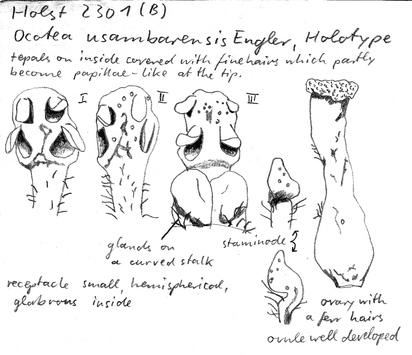 Holst 2301 (B)
Ocotea usambarensis Engler, Holotype
tepals on inside covered with fine hairs which partly
become papillae-like at the tip.
I II III
glands on
a curved stalk
staminode
receptacle small, hemispherical,
glabrous inside
ovary with
a few hairs
ovule well developed